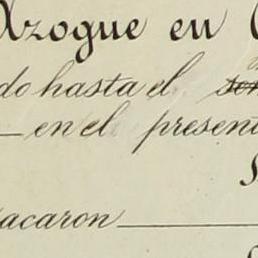 Azogue en
do hasta el
en el present
acaron